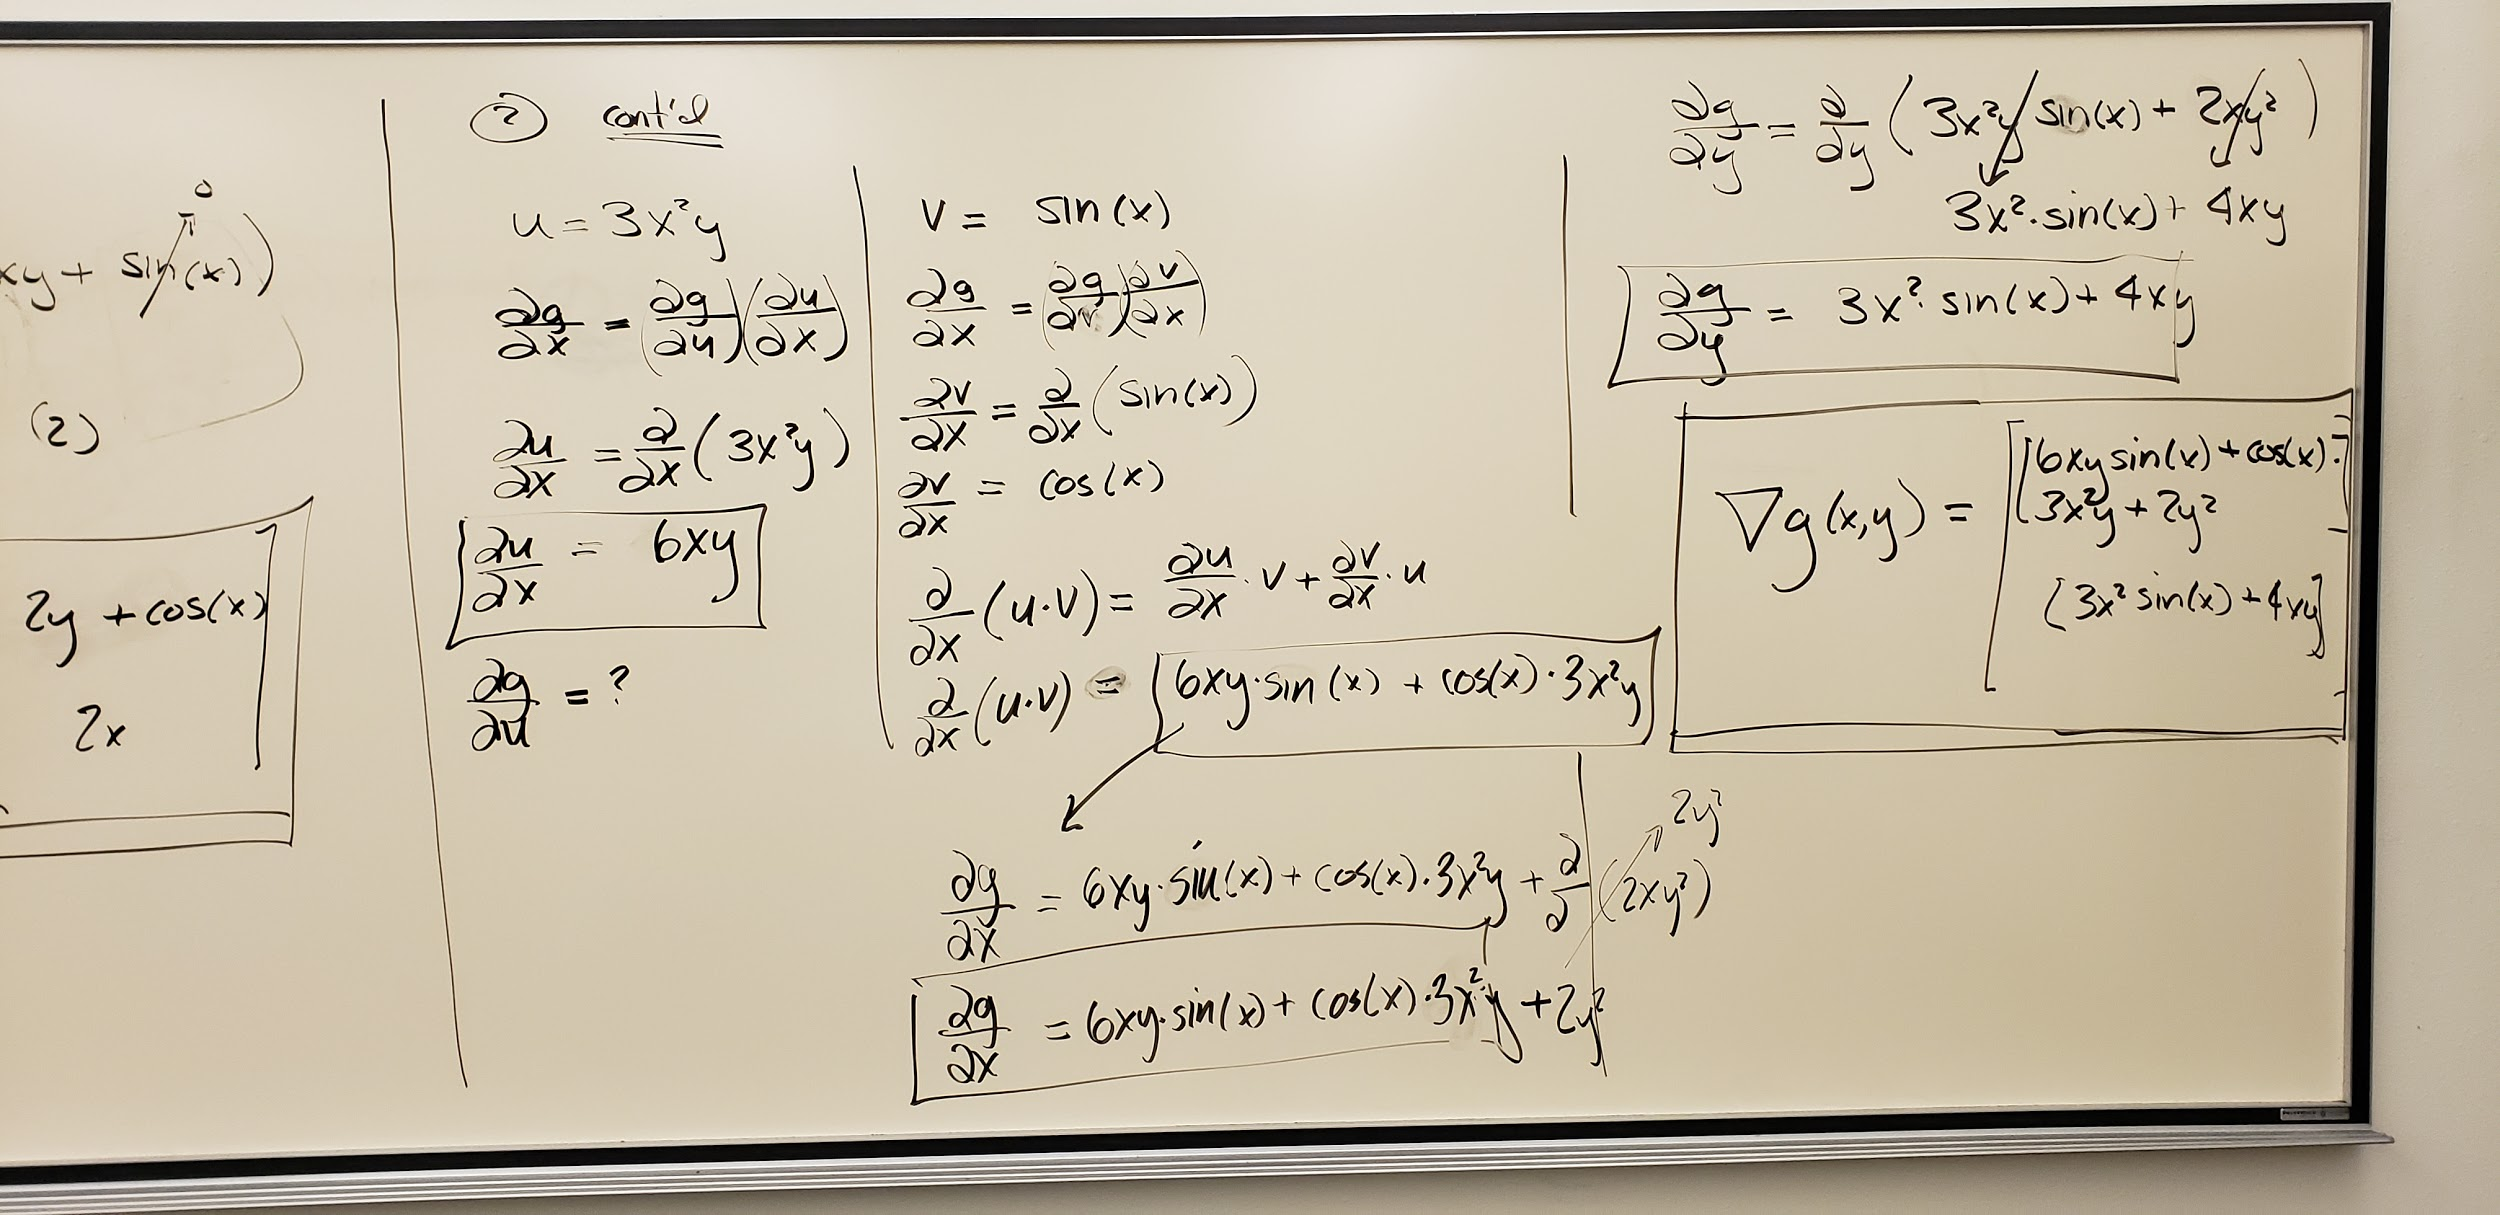 0
xy + sin(x))
(2)
2y + cos(x)
2x
② cont'd
u = 3x²y
∂g/∂x = (∂g/∂u)(∂u/∂x)
∂u/∂x = ∂/∂x (3x²y)
∂u/∂x = 6xy
∂g/∂u = ?
v = sin(x)
∂g/∂x = (∂g/∂v)(∂v/∂x)
∂v/∂x = ∂/∂x (sin(x))
∂v/∂x = cos(x)
∂/∂x (u·v) = ∂u/∂x · v + ∂v/∂x · u
∂/∂x (u·v) = 6xy·sin(x) + cos(x)·3x²y
∂g/∂x = 6xy·sin(x) + cos(x)·3x²y + ∂/∂ (2xy²)
2y²
∂g/∂x = 6xy·sin(x) + cos(x)·3x²y + 2y²
∂g/∂y = ∂/∂y (3x²y sin(x) + 2xy²)
3x²·sin(x) + 4xy
∂g/∂y = 3x²·sin(x) + 4xy
∇g(x,y) =
[6xy sin(x) + cos(x)·
3x²y + 2y²]
[3x² sin(x) + 4xy]